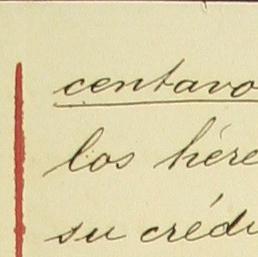 centavo
los hére
su crédi